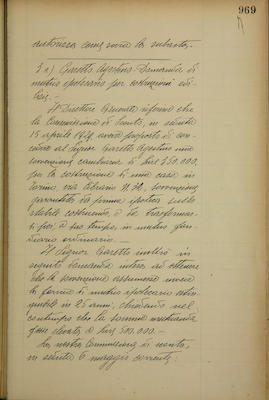 969
autorizza come sopra la subasta.
5 a) Garetto Agostino. Domanda di
mutuo ipotecario per costruzioni edi-
lizie.-
Il Direttore Generale informa che
la Commissione di Sconto, in seduta
15 aprile 1929, aveva proposto di con-
cedere al Signor Garetto Agostino una
sovvenzione cambiaria di Lire 350.000,
per la costruzione di una casa in
Torino, via Cibrario N. 32, sovvenzione
garantita da prima ipoteca sullo
stabile costruendo, e da trasformar-
si, poi, a suo tempo, in mutuo fon-
diario ordinario.-
Il Signor Garetto inoltrò in
seguito domanda intesa ad ottenere
che la sovvenzione assumesse invece
la forma di mutuo ipotecario estin-
guibile in 25 anni, chiedendo nel
contempo che la somma mutuanda
fosse elevata a Lire 500.000.-
La nostra Commissione di sconto,
in seduta 6 maggio corrente,